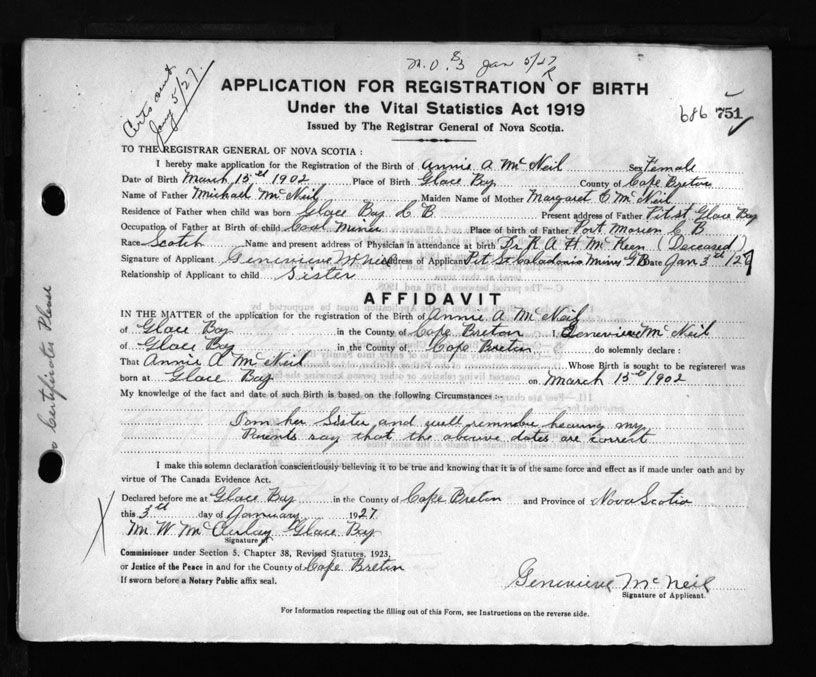 M.O. $3 Jan 5/27
R
Certs sent
Jany 5/27.
APPLICATION FOR REGISTRATION OF BIRTH
Under the Vital Statistics Act 1919
686 751
Issued by The Registrar General of Nova Scotia.
TO THE REGISTRAR GENERAL OF NOVA SCOTIA :
I hereby make application for the Registration of the Birth of Annie A McNeil Sex Female
Date of Birth March 15th 1902 Place of Birth Glace Bay County of Cape Breton
Name of Father Michael McNeil Maiden Name of Mother Margaret C McNeil
Residence of Father when child was born Glace Bay C B Present address of Father Pit St Glace Bay
Occupation of Father at Birth of child Coal Miner Place of birth of Father Port Morien C B
Race Scotch Name and present address of Physician in attendance at birth Dr R A H McKeen (Deceased)
Signature of Applicant Genevieve McNeil Address of Applicant Pit St Caladonia Mines G B Date Jan 3rd /27
Relationship of Applicant to child Sister
AFFIDAVIT
IN THE MATTER of the application for the registration of the Birth of Annie A McNeil
of Glace Bay in the County of Cape Breton I, Genevieve McNeil
of Glace Bay in the County of Cape Breton do solemnly declare :
That Annie A McNeil Whose Birth is sought to be registered was
born at Glace Bay on March 15th 1902
My knowledge of the fact and date of such Birth is based on the following Circumstances :-
I am her Sister and well remmber hearing my
Parents say that the above dates are correct
I make this solemn declaration conscientiously believing it to be true and knowing that it is of the same force and effect as if made under oath and by
virtue of The Canada Evidence Act.
Declared before me at Glace Bay in the County of Cape Breton and Province of Nova Scotia
this 3rd day of January 1927
M W McAulay Glace Bay
Signature of
Commissioner under Section 5, Chapter 38, Revised Statutes, 1923,
or Justice of the Peace in and for the County of Cape Breton
If sworn before a Notary Public affix seal.
Genevieve McNeil
Signature of Applicant.
For Information respecting the filling out of this Form, see Instructions on the reverse side.
Certificates Please